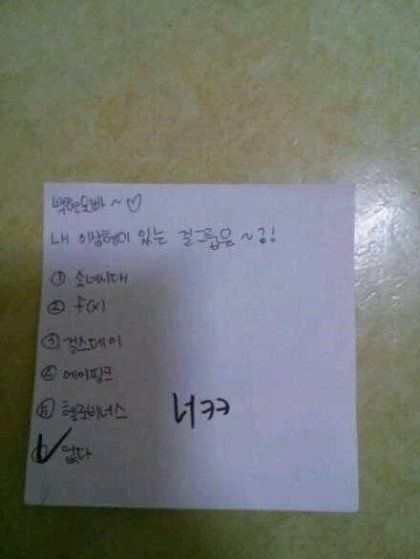 백현오빠~♡
내 이상형이 있는 걸그룹은~?!
① 소녀시대
② f(x)
걸스데이
에이핑크
헬로비너스
너ㅋㅋ
✓ 없다